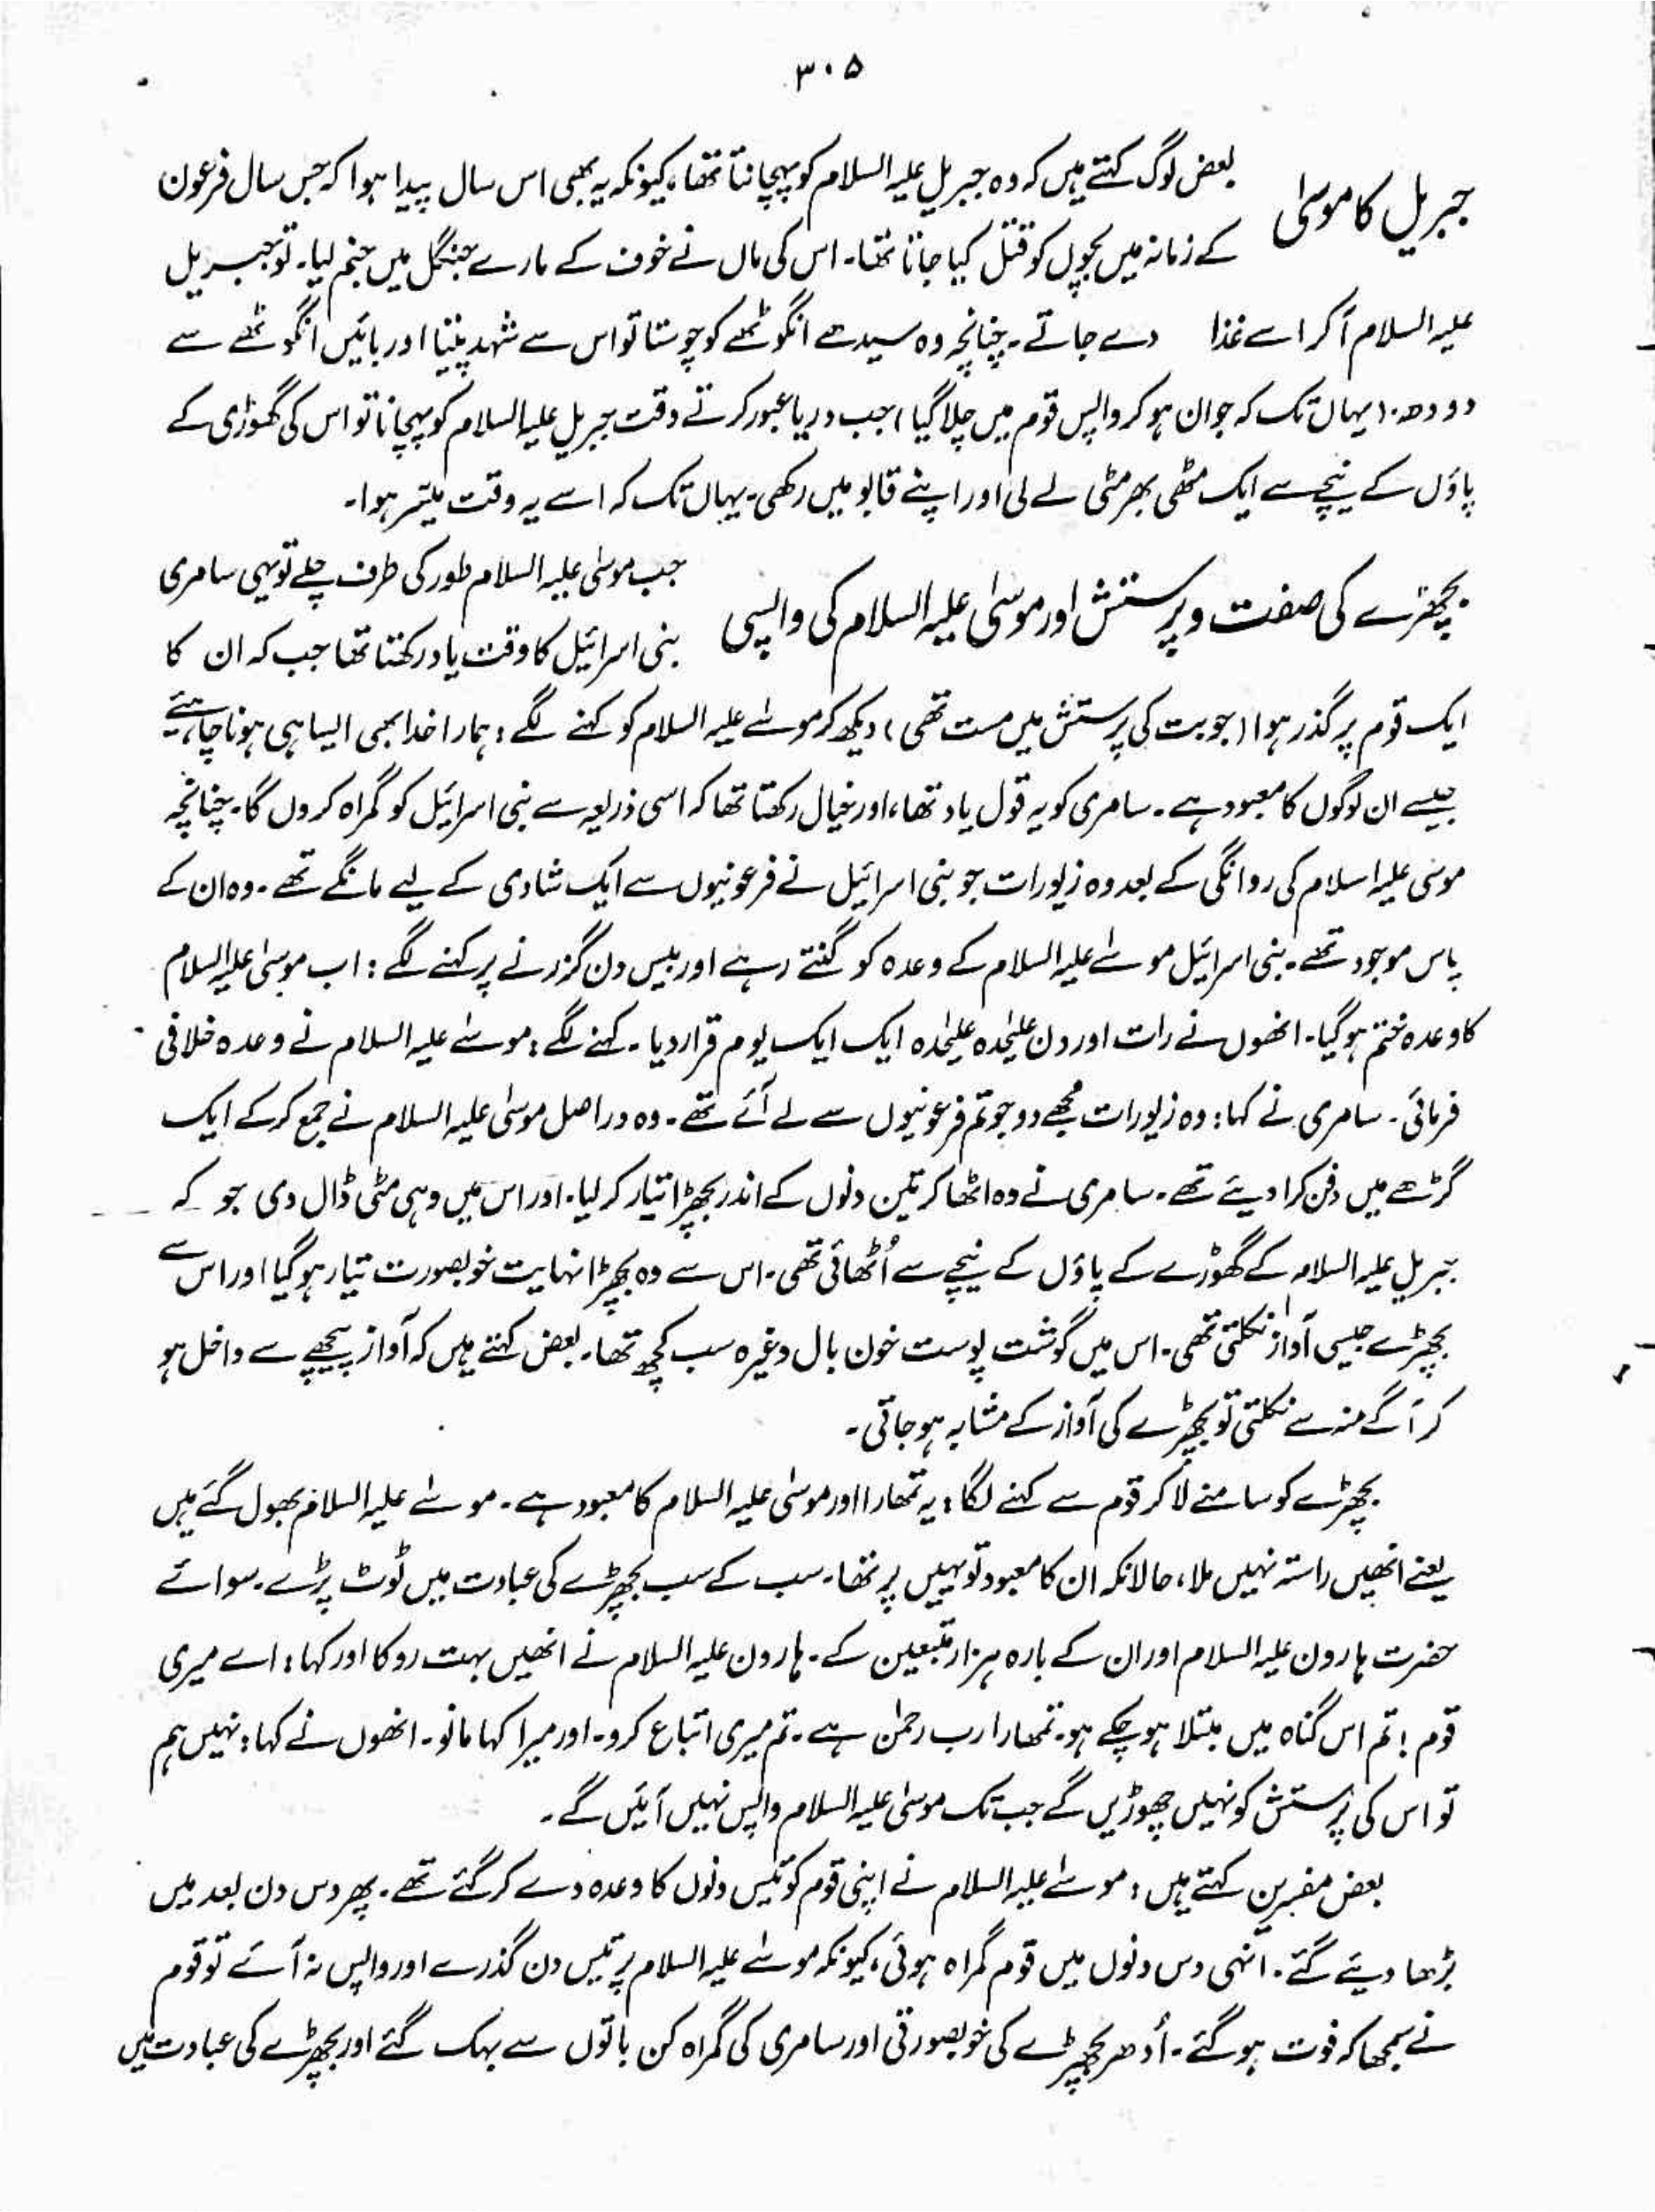 ۳۰۵
جبریل کا موسیٰ
بعض لوگ کہتے ہیں کہ وہ جبریل علیہ السلام کو پہچانتا تھا، کیونکہ یہ بھی اس سال پیدا ہوا کہ جس سال فرعون
کے زمانہ میں بچوں کو قتل کیا جاتا تھا۔ اس کی ماں نے خوف کے مارے جنگل میں جنم لیا۔ تو جبریل
علیہ السلام آکر اسے غذا دے جاتے۔ چنانچہ وہ سیدھے انگوٹھے کو چوستا تو اس سے شہد پیتا اور بائیں انگوٹھے سے
دودھ۔ (یہاں تک کہ جوان ہو کر واپس قوم میں چلا گیا) جب دریا عبور کرتے وقت جبریل علیہ السلام کو پہچانا تو اس کی گھوڑی کے
پاؤں کے نیچے سے ایک مٹھی بھر مٹی لے لی اور اپنے قابو میں رکھی۔ یہاں تک کہ اسے یہ وقت میسّر ہوا۔
بچھڑے کی صفت و پرستش اور موسیٰ علیہ السلام کی واپسی
جب موسیٰ علیہ السلام طور کی طرف چلے تو یہی سامری
بنی اسرائیل کا وقت یاد رکھتا تھا جب کہ ان کا
ایک قوم پر گذر ہوا (جو بت کی پرستش میں مست تھی) دیکھ کر موسےٰ علیہ السلام کو کہنے لگے: ہمارا خدا بھی ایسا ہی ہونا چاہئیے
جیسے ان لوگوں کا معبود ہے۔ سامری کو یہ قول یاد تھا، اور خیال رکھتا تھا کہ اسی ذریعہ سے بنی اسرائیل کو گمراہ کروں گا۔ چنانچہ
موسیٰ علیہ اسلام کی روانگی کے بعد وہ زیورات جو بنی اسرائیل نے فرعونیوں سے ایک شادی کے لیے مانگے تھے۔ وہ ان کے
پاس موجود تھے۔ بنی اسرائیل موسےٰ علیہ السلام کے وعدہ کو گنتے رہے اور بیس دن گزرنے پر کہنے لگے: اب موسیٰ علیہ السلام
کا وعدہ ختم ہو گیا۔ انھوں نے رات اور دن علیٰحدہ علیٰحدہ ایک ایک یوم قرار دیا۔ کہنے لگے: موسےٰ علیہ السلام نے وعدہ خلافی
فرمائی۔ سامری نے کہا: وہ زیورات مجھے دو جو تم فرعونیوں سے لے آئے تھے۔ وہ دراصل موسیٰ علیہ السلام نے جمع کر کے ایک
گڑھے میں دفن کرا دیئے تھے۔ سامری نے وہ اٹھا کر تین دنوں کے اندر بچھڑا تیار کر لیا۔ اور اس میں وہی مٹی ڈال دی جو کہ
جبریل علیہ السلام کے گھوڑے کے پاؤں کے نیچے سے اُٹھائی تھی۔ اس سے وہ بچھڑا نہایت خوبصورت تیار ہو گیا اور اس سے
بچھڑے جیسی آواز نکلتی تھی۔ اس میں گوشت پوست خون بال وغیرہ سب کچھ تھا۔ بعض کہتے ہیں کہ آواز پیچھے سے داخل ہو
کر آگے منہ سے نکلتی تو بچھڑے کی آواز کے مشابہ ہو جاتی۔
بچھڑے کو سامنے لا کر قوم سے کہنے لگا: یہ تمھارا اور موسیٰ علیہ السلام کا معبود ہے۔ موسےٰ علیہ السلام بھول گئے ہیں
یعنے انھیں راستہ نہیں ملا، حالانکہ ان کا معبود تو یہیں پر تھا۔ سب کے سب بچھڑے کی عبادت میں ٹوٹ پڑے۔ سوائے
حضرت ہارون علیہ السلام اور ان کے بارہ ہزار متبعین کے۔ ہارون علیہ السلام نے انھیں بہت روکا اور کہا: اے میری
قوم! تم اس گناہ میں مبتلا ہو چکے ہو۔ تمھارا رب رحمٰن ہے۔ تم میری اتباع کرو۔ اور میرا کہا مانو۔ انھوں نے کہا: نہیں ہم
تو اس کی پرستش کو نہیں چھوڑیں گے جب تک موسیٰ علیہ السلام واپس نہیں آئیں گے۔
بعض مفسرین کہتے ہیں: موسےٰ علیہ السلام نے اپنی قوم کو تیس دنوں کا وعدہ دے کر گئے تھے۔ پھر دس دن بعد میں
بڑھا دیئے گئے۔ انہی دس دنوں میں قوم گمراہ ہوئی، کیونکہ موسےٰ علیہ السلام پر تیس دن گذرے اور واپس نہ آئے تو قوم
نے سمجھا کہ فوت ہو گئے۔ اُدھر بچھڑے کی خوبصورتی اور سامری کی گمراہ کن باتوں سے بہک گئے اور بچھڑے کی عبادت میں